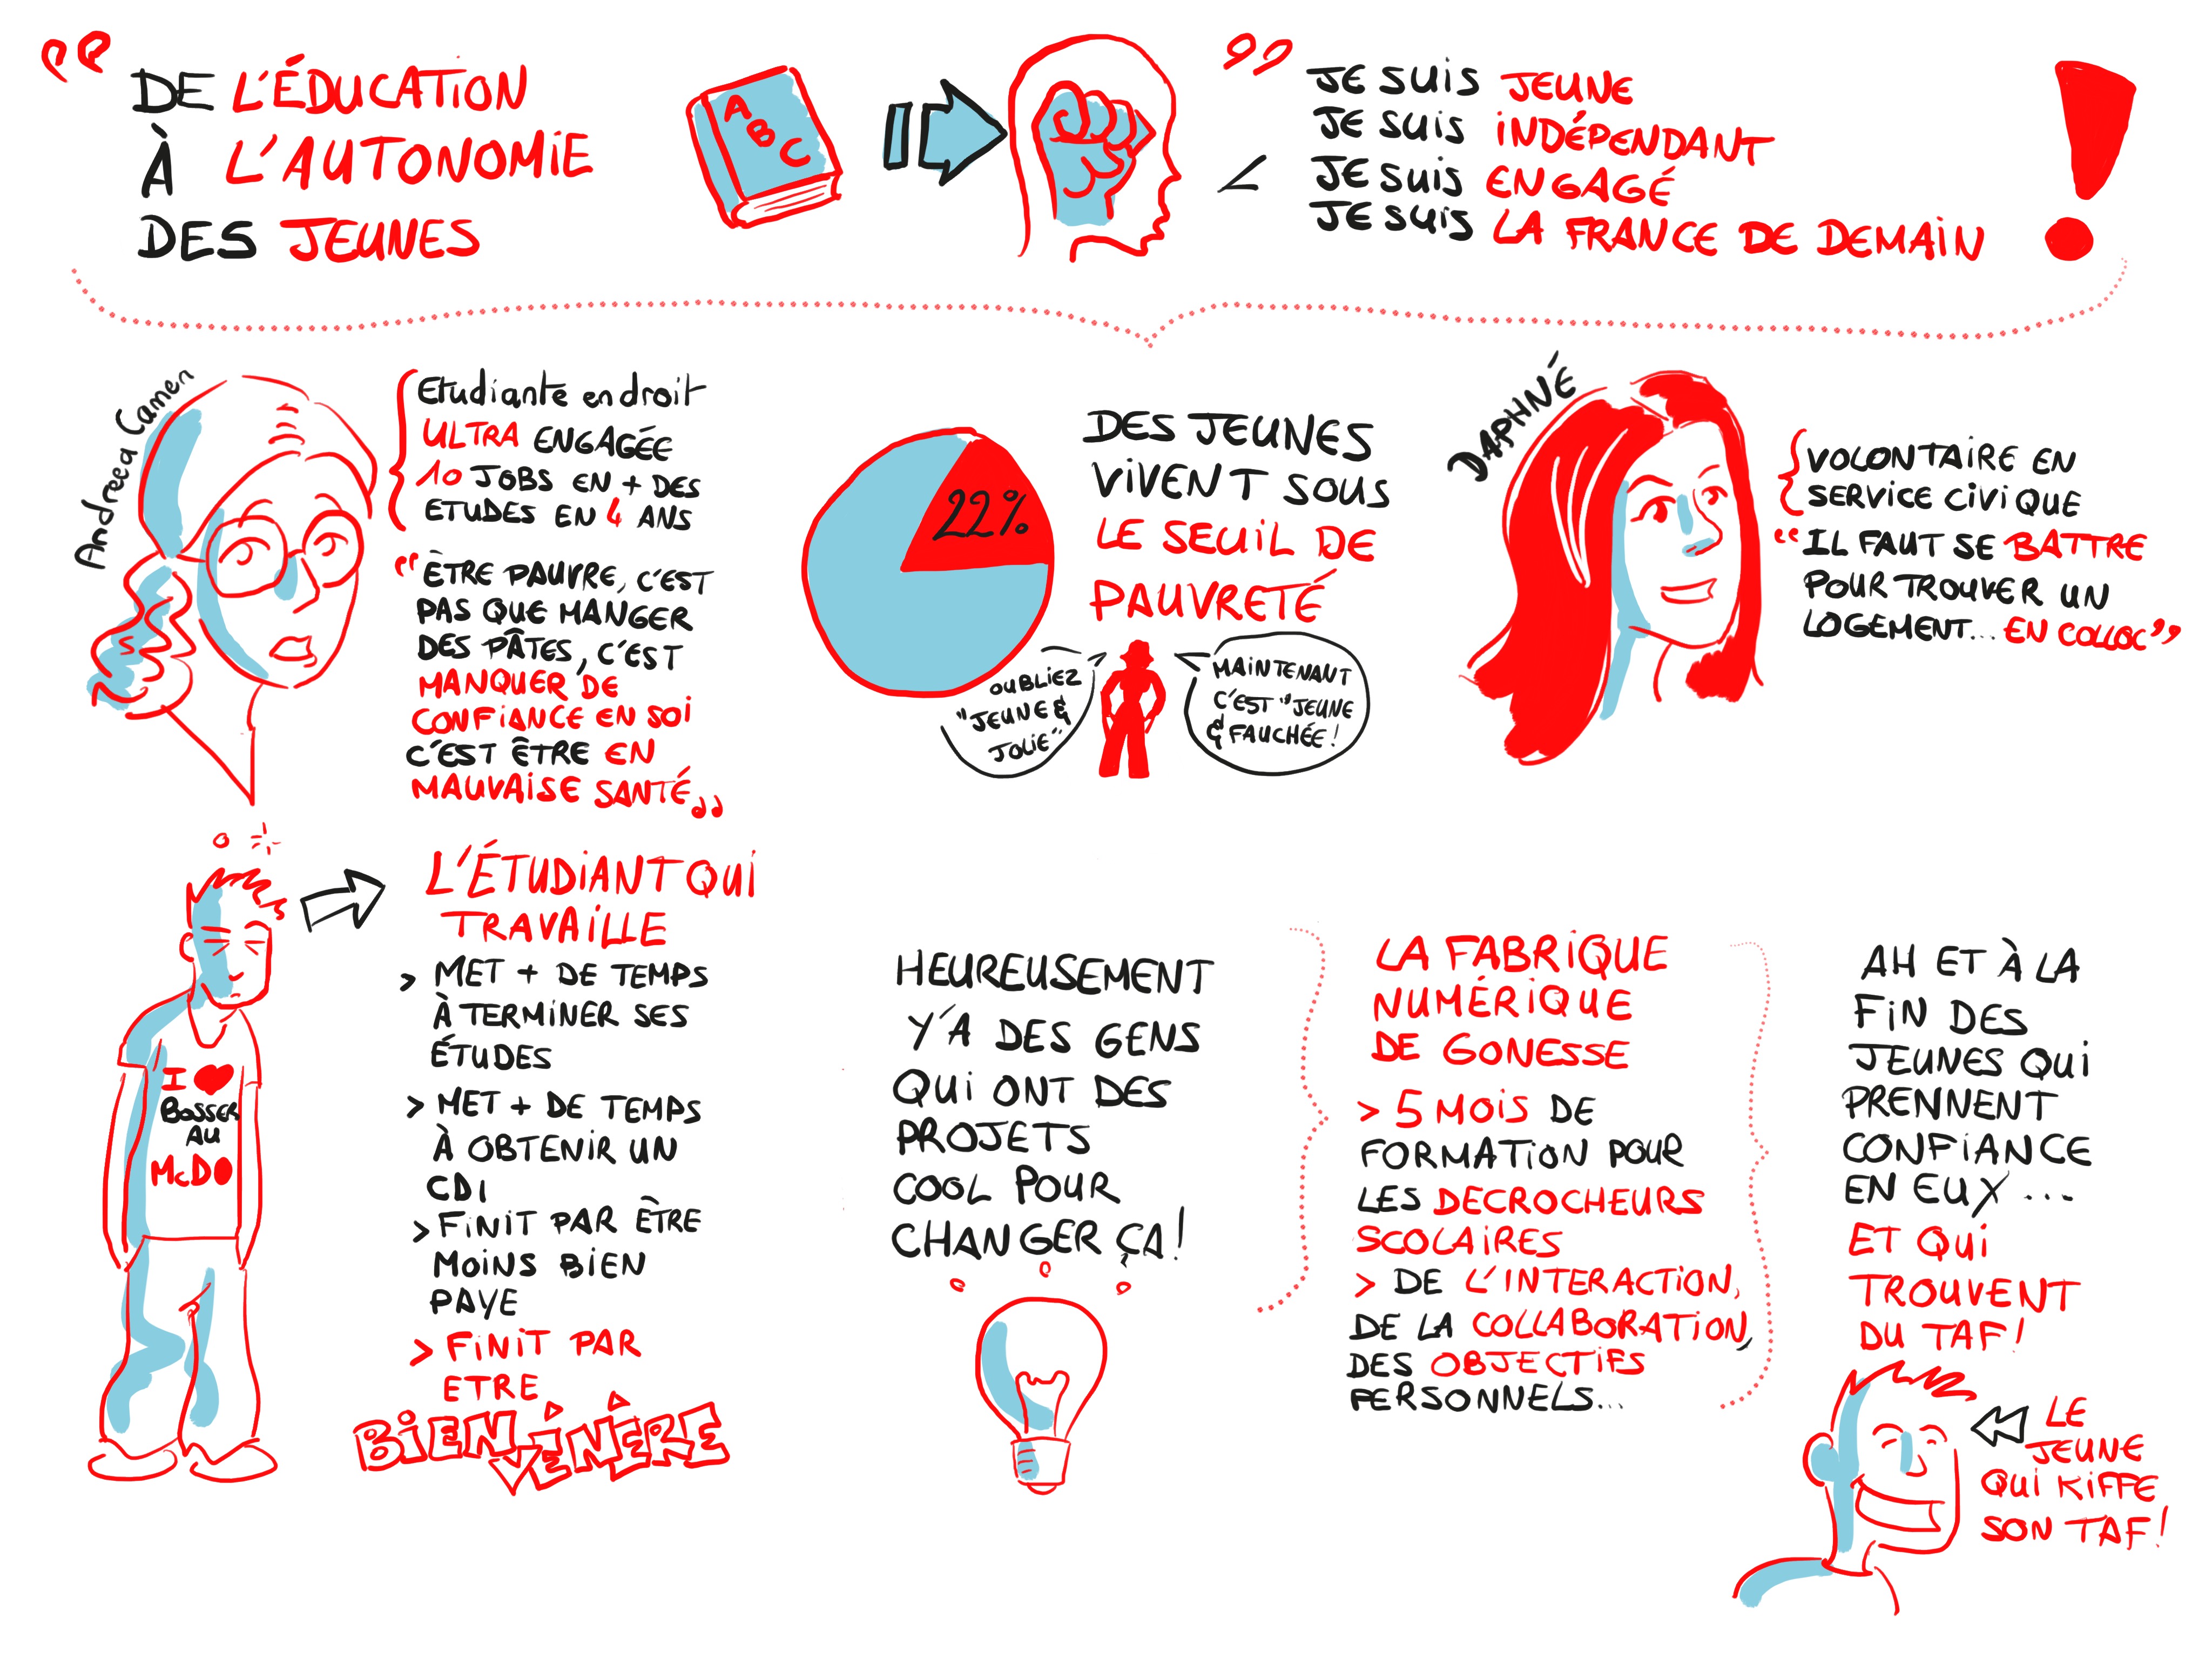 DE L'ÉDUCATION
À L'AUTONOMIE
DES JEUNES
A
B
C
JE SUIS JEUNE
JE SUIS INDÉPENDANT
JE SUIS ENGAGÉ
JE SUIS LA FRANCE DE DEMAIN
!
Andreea Camen
Etudiante en droit
ULTRA ENGAGÉE
10 JOBS EN + DES
ETUDES EN 4 ANS
"ÊTRE PAUVRE, C'EST
PAS QUE MANGER
DES PÂTES, C'EST
MANQUER DE
CONFIANCE EN SOI
C'EST ÊTRE EN
MAUVAISE SANTÉ"
22%
DES JEUNES
VIVENT SOUS
LE SEUIL DE
PAUVRETÉ
OUBLIEZ
"JEUNE &
JOLIE"
MAINTENANT
C'EST "JEUNE
& FAUCHÉE!
DAPHNÉ
VOLONTAIRE EN
SERVICE CIVIQUE
"IL FAUT SE BATTRE
POUR TROUVER UN
LOGEMENT... EN COLLOC"
I ♥
BOSSER
AU
McDO
L'ÉTUDIANT QUI
TRAVAILLE
> MET + DE TEMPS
À TERMINER SES
ÉTUDES
> MET + DE TEMPS
À OBTENIR UN
CDI
> FINIT PAR ÊTRE
MOINS BIEN
PAYE
> FINIT PAR
ETRE
BIEN VÉNÈRE
HEUREUSEMENT
Y'A DES GENS
QUI ONT DES
PROJETS
COOL POUR
CHANGER ÇA!
LA FABRIQUE
NUMÉRIQUE
DE GONESSE
> 5 MOIS DE
FORMATION POUR
LES DECROCHEURS
SCOLAIRES
> DE L'INTERACTION,
DE LA COLLABORATION,
DES OBJECTIFS
PERSONNELS...
AH ET À LA
FIN DES
JEUNES QUI
PRENNENT
CONFIANCE
EN EUX...
ET QUI
TROUVENT
DU TAF!
LE
JEUNE
QUI KIFFE
SON TAF!